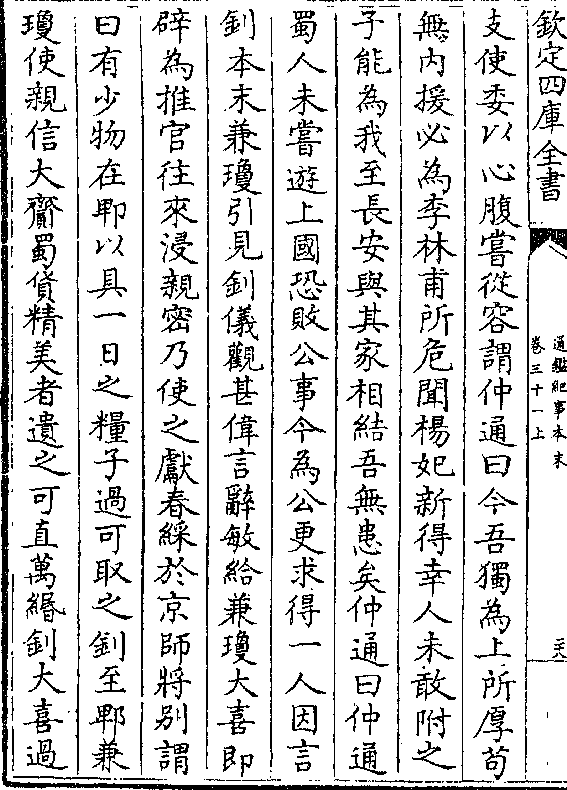 欽定四庫全書
通鑑紀事本末
卷三十一上
支使委以心腹嘗從容謂仲通曰今吾獨為上所厚苟
無内援必為李林甫所危聞楊妃新得幸人未敢附之
子能為我至長安與其家相結吾無患矣仲通曰仲通
蜀人未嘗遊上國恐敗公事今為公更求得一人因言
釗本末兼瓊引見釗儀觀甚偉言辭敏給兼瓊大喜即
辟為推官往來浸親密乃使之獻春綵於京師將别謂
曰有少物在郫以具一日之糧子過可取之釗至郫兼
瓊使親信大齎蜀貨精美者遺之可直萬緡釗大喜過